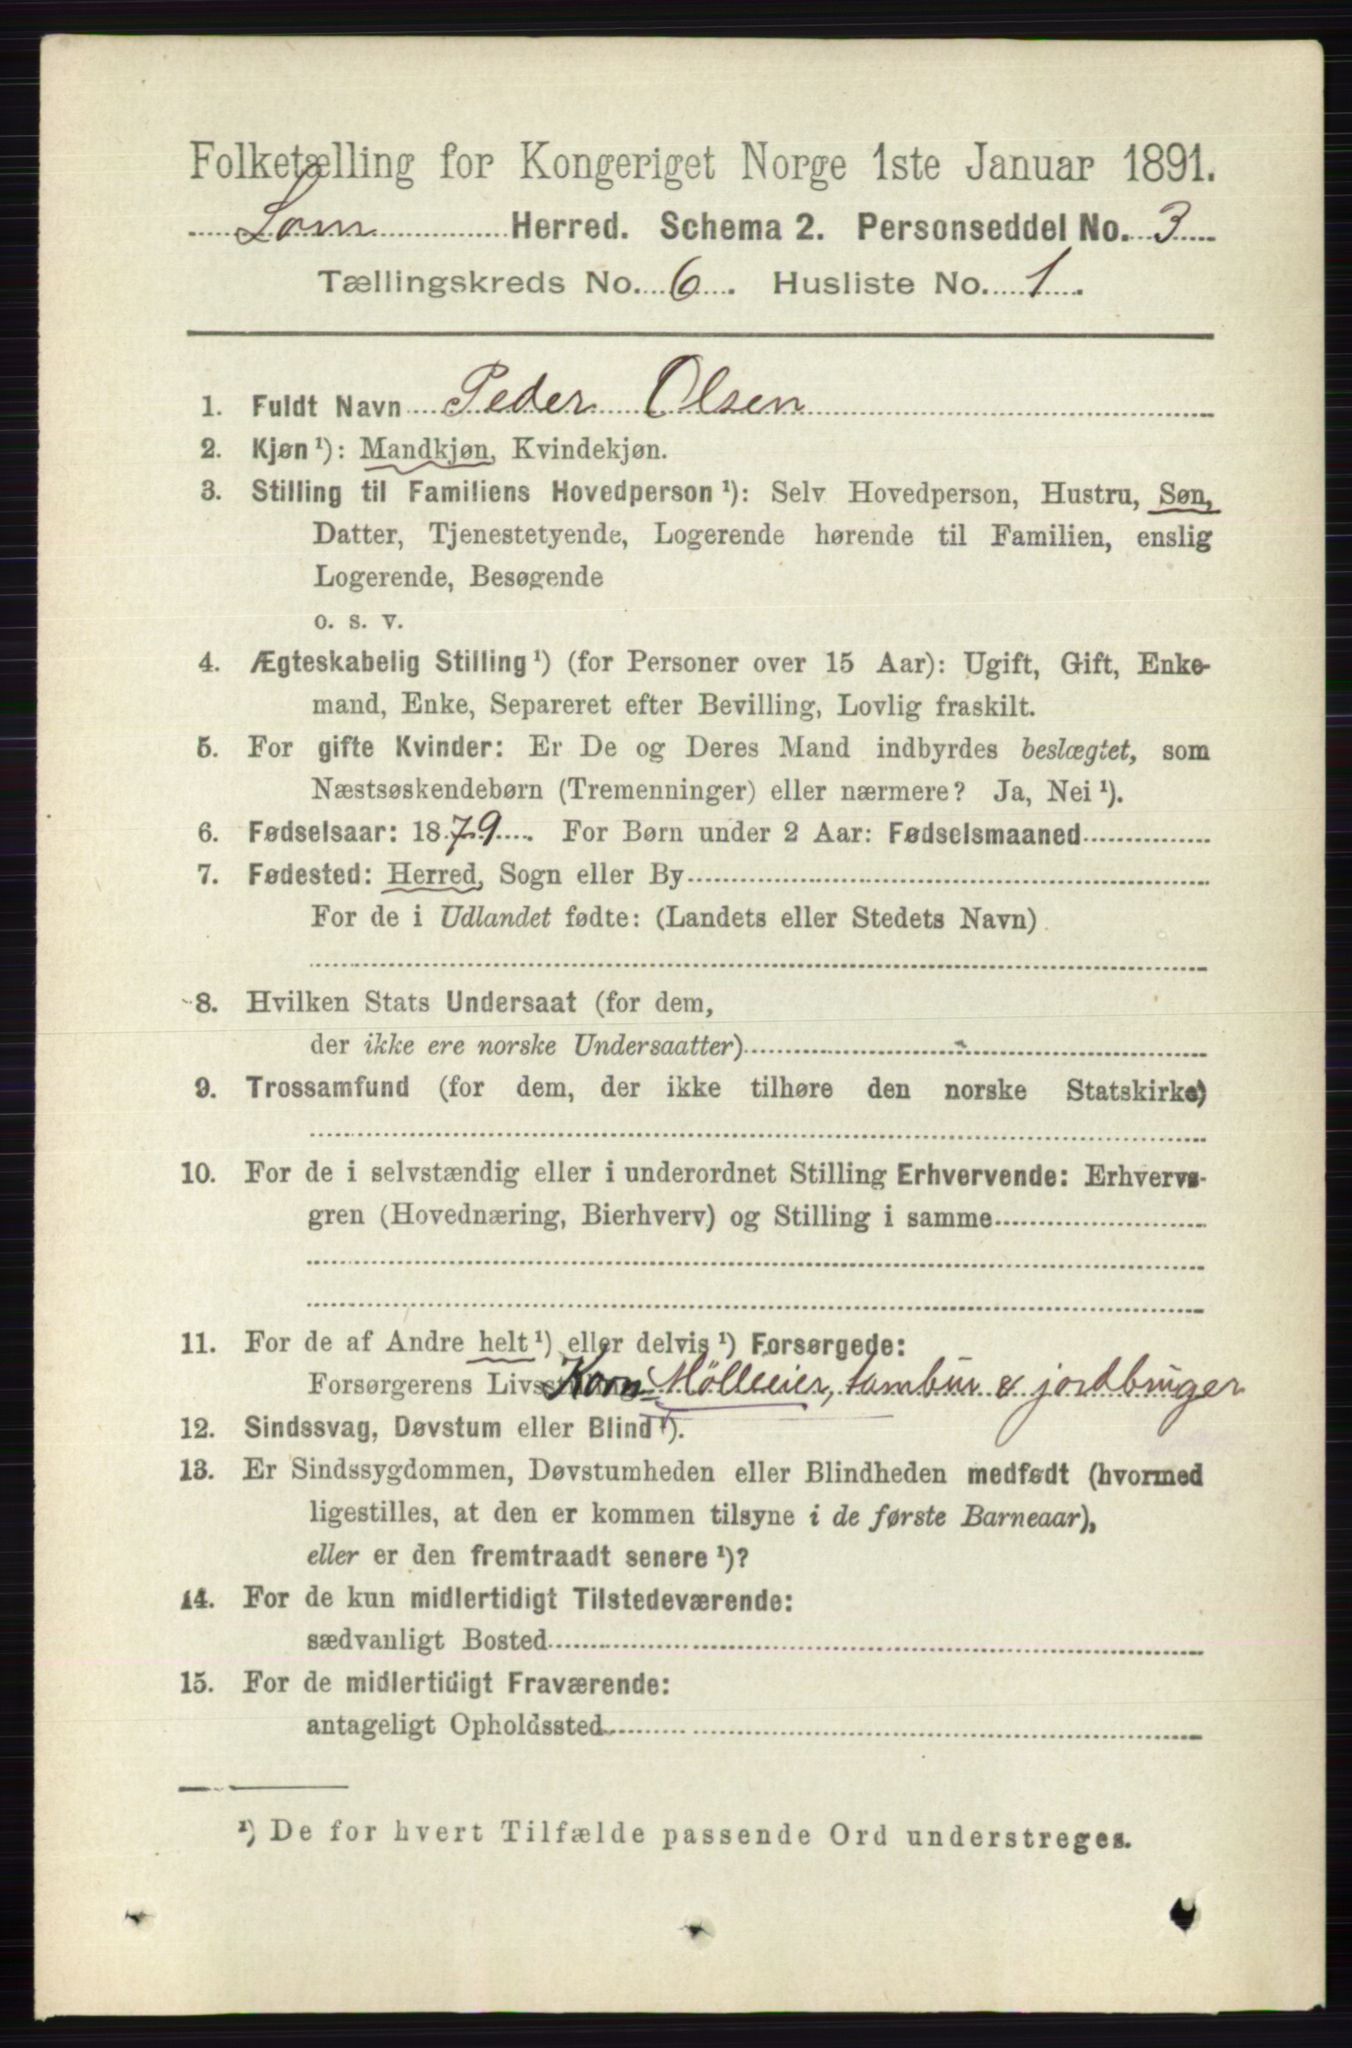 Folketælling for Kongeriget Norge 1ste Januar 1891.
Lom Herred. Schema 2. Personseddel No. 3
Tællingskreds No. 6. Husliste No. 1.
1. Fuldt Navn Peder Olsen
2. Kjøn ¹): Mandkjøn, Kvindekjøn.
3. Stilling til Familiens Hovedperson ¹): Selv Hovedperson, Hustru, Søn,
Datter, Tjenestetyende, Logerende hørende til Familien, enslig
Logerende, Besøgende
o. s. v.
4. Ægteskabelig Stilling ¹) (for Personer over 15 Aar): Ugift, Gift, Enke-
mand, Enke, Separeret efter Bevilling, Lovlig fraskilt.
5. For gifte Kvinder: Er De og Deres Mand indbyrdes beslægtet, som
Næstsøskendebørn (Tremenninger) eller nærmere? Ja, Nei ¹).
6. Fødselsaar: 1879. For Børn under 2 Aar: Fødselsmaaned
7. Fødested: Herred, Sogn eller By
For de i Udlandet fødte: (Landets eller Stedets Navn)
8. Hvilken Stats Undersaat (for dem,
der ikke ere norske Undersaatter)
9. Trossamfund (for dem, der ikke tilhøre den norske Statskirke)
10. For de i selvstændig eller i underordnet Stilling Erhvervende: Erhvervs-
gren (Hovednæring, Bierhverv) og Stilling i samme
11. For de af Andre helt ¹) eller delvis ¹) Forsørgede:
Forsørgerens Livsstilling Korn Mölleeier, tambur & jordbruger
12. Sindssvag, Døvstum eller Blind ¹).
13. Er Sindssygdommen, Døvstumheden eller Blindheden medfødt (hvormed
ligestilles, at den er kommen tilsyne i de første Barneaar),
eller er den fremtraadt senere ¹)?
14. For de kun midlertidigt Tilstedeværende:
sædvanligt Bosted
15. For de midlertidigt Fraværende:
antageligt Opholdssted
¹) De for hvert Tilfælde passende Ord understreges.